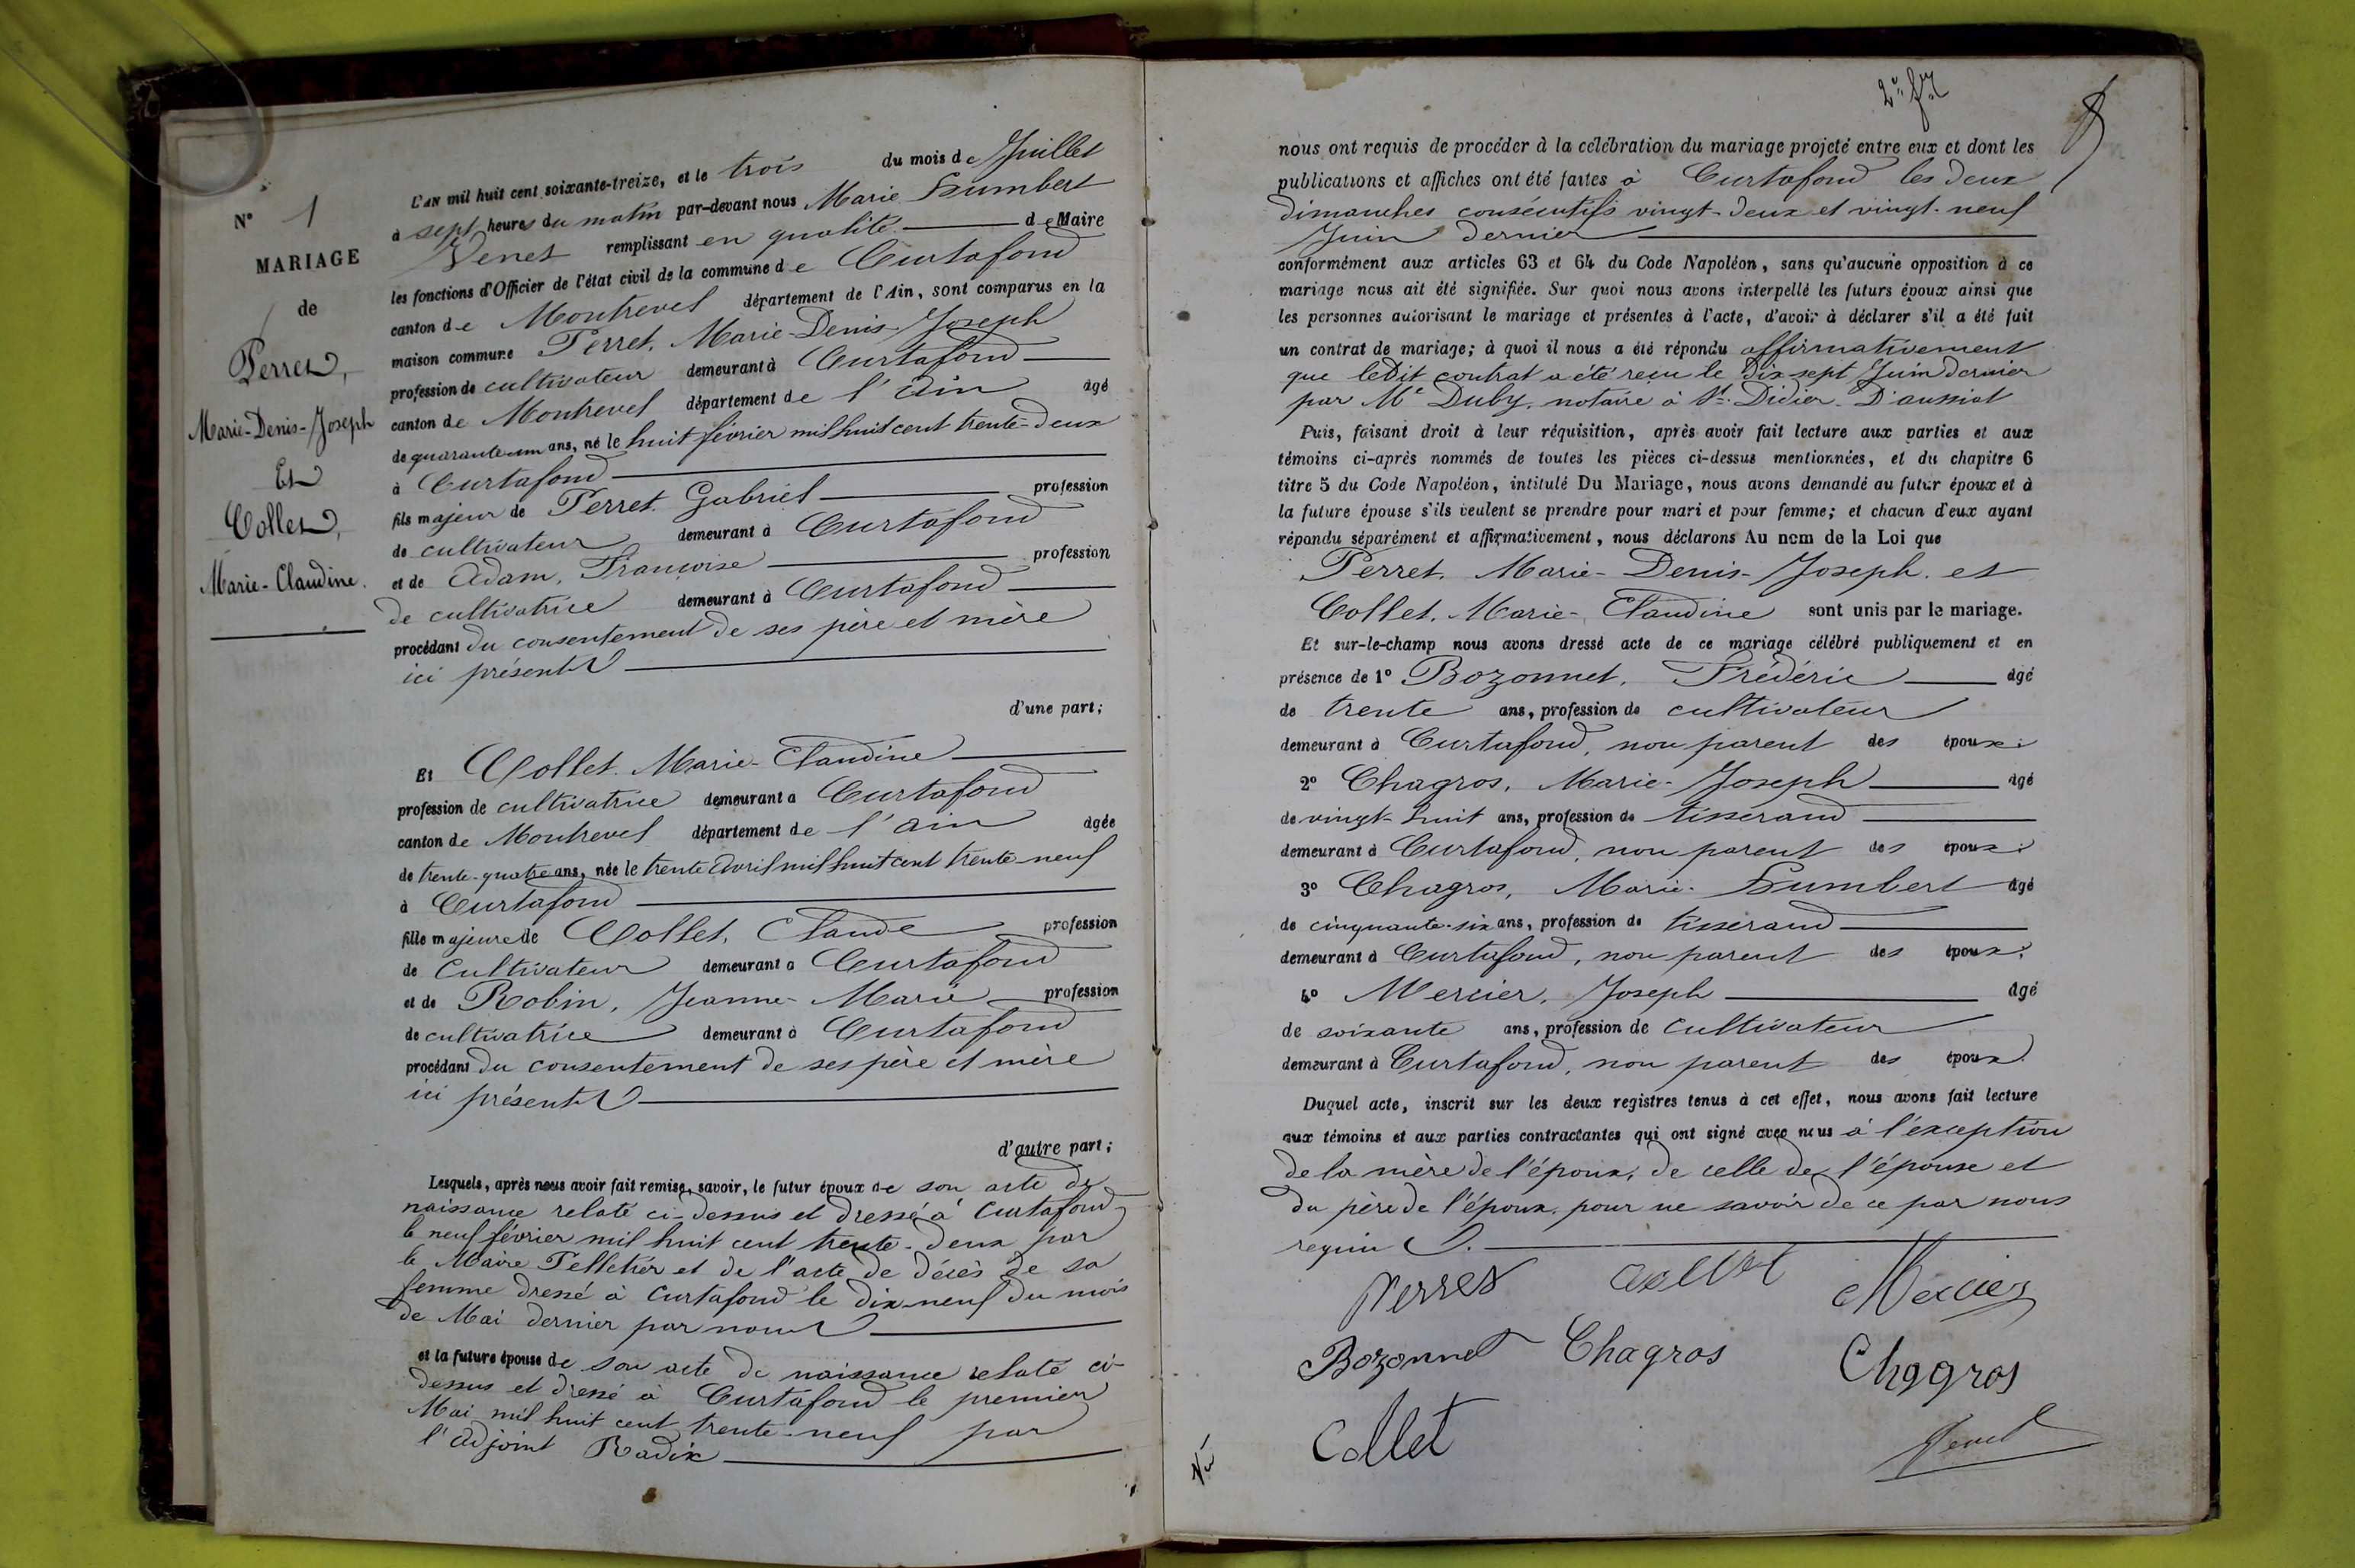 N° 1
MARIAGE
de
Perret,
Marie-Denis-Joseph
Et
Collet,
Marie-Claudine.
L'AN mil huit cent soixante-treize, et le trois du mois de Juillet
à sept heures du matin par-devant nous Marie Humbert
Venet remplissant en qualité de Maire
les fonctions d'Officier de l'état civil de la commune de Curtafond
canton de Montrevel département de l'Ain, sont comparus en la
maison commune Perret, Marie-Denis-Joseph
profession de cultivateur demeurant à Curtafond
canton de Montrevel département de l'Ain âgé
de quarante-un ans, né le huit février mil huit cent trente-deux
à Curtafond
fils majeur de Perret, Gabriel profession
de cultivateur demeurant à Curtafond
et de Adam, Françoise profession
de cultivatrice demeurant à Curtafond
procédant du consentement de ses père et mère
ici présents
d'une part;
Et Collet, Marie-Claudine
profession de cultivatrice demeurant à Curtafond
canton de Montrevel département de l'Ain âgée
de trente-quatre ans, née le trente Avril mil huit cent trente-neuf
à Curtafond
fille majeure de Collet, Claude profession
de Cultivateur demeurant à Curtafond
et de Robin, Jeanne-Marie profession
de cultivatrice demeurant à Curtafond
procédant du consentement de ses père et mère
ici présents
d'autre part;
Lesquels, après nous avoir fait remise, savoir, le futur époux de son acte de
naissance relaté ci-dessus et dressé à Curtafond
le neuf février mil huit cent trente-deux par
le Maire Pelletier et de l'acte de décès de sa
femme dressé à Curtafond le dix-neuf du mois
de Mai dernier par nous
et la future épouse de son acte de naissance relaté ci-
dessus et dressé à Curtafond le premier
Mai mil huit cent trente-neuf par
l'adjoint Radix
nous ont requis de procéder à la célébration du mariage projeté entre eux et dont les
publications et affiches ont été faites à Curtafond les deux
dimanches consécutifs vingt-deux et vingt-neuf
Juin dernier
conformément aux articles 63 et 64 du Code Napoléon, sans qu'aucune opposition à ce
mariage nous ait été signifiée. Sur quoi nous avons interpellé les futurs époux ainsi que
les personnes autorisant le mariage et présentes à l'acte, d'avoir à déclarer s'il a été fait
un contrat de mariage; à quoi il nous a été répondu affirmativement
que ledit contrat a été reçu le dix sept Juin dernier
par Me Duby, notaire à St Didier D'aussiat
Puis, faisant droit à leur réquisition, après avoir fait lecture aux parties et aux
témoins ci-après nommés de toutes les pièces ci-dessus mentionnées, et du chapitre 6
titre 5 du Code Napoléon, intitulé Du Mariage, nous avons demandé au futur époux et à
la future épouse s'ils veulent se prendre pour mari et pour femme; et chacun d'eux ayant
répondu séparément et affirmativement, nous déclarons Au nom de la Loi que
Perret, Marie-Denis-Joseph, et
Collet, Marie-Claudine sont unis par le mariage.
Et sur-le-champ nous avons dressé acte de ce mariage célébré publiquement et en
présence de 1° Bozonnet, Frédéric âgé
de trente ans, profession de cultivateur
demeurant à Curtafond, non parent des époux;
2° Chagros, Marie-Joseph âgé
de vingt-huit ans, profession de tisserand
demeurant à Curtafond, non parent des époux;
3° Chagros, Marie-Humbert âgé
de cinquante-six ans, profession de tisserand
demeurant à Curtafond, non parent des époux;
4° Mercier, Joseph âgé
de soixante ans, profession de cultivateur
demeurant à Curtafond, non parent des époux.
Duquel acte, inscrit sur les deux registres tenus à cet effet, nous avons fait lecture
aux témoins et aux parties contractantes qui ont signé avec nous à l'exception
de la mère de l'époux, de celle de l'épouse et
du père de l'époux, pour ne savoir de ce par nous
requis.
Perret Collet Mercier
Bozonnet Chagros Chagros
Collet Venet